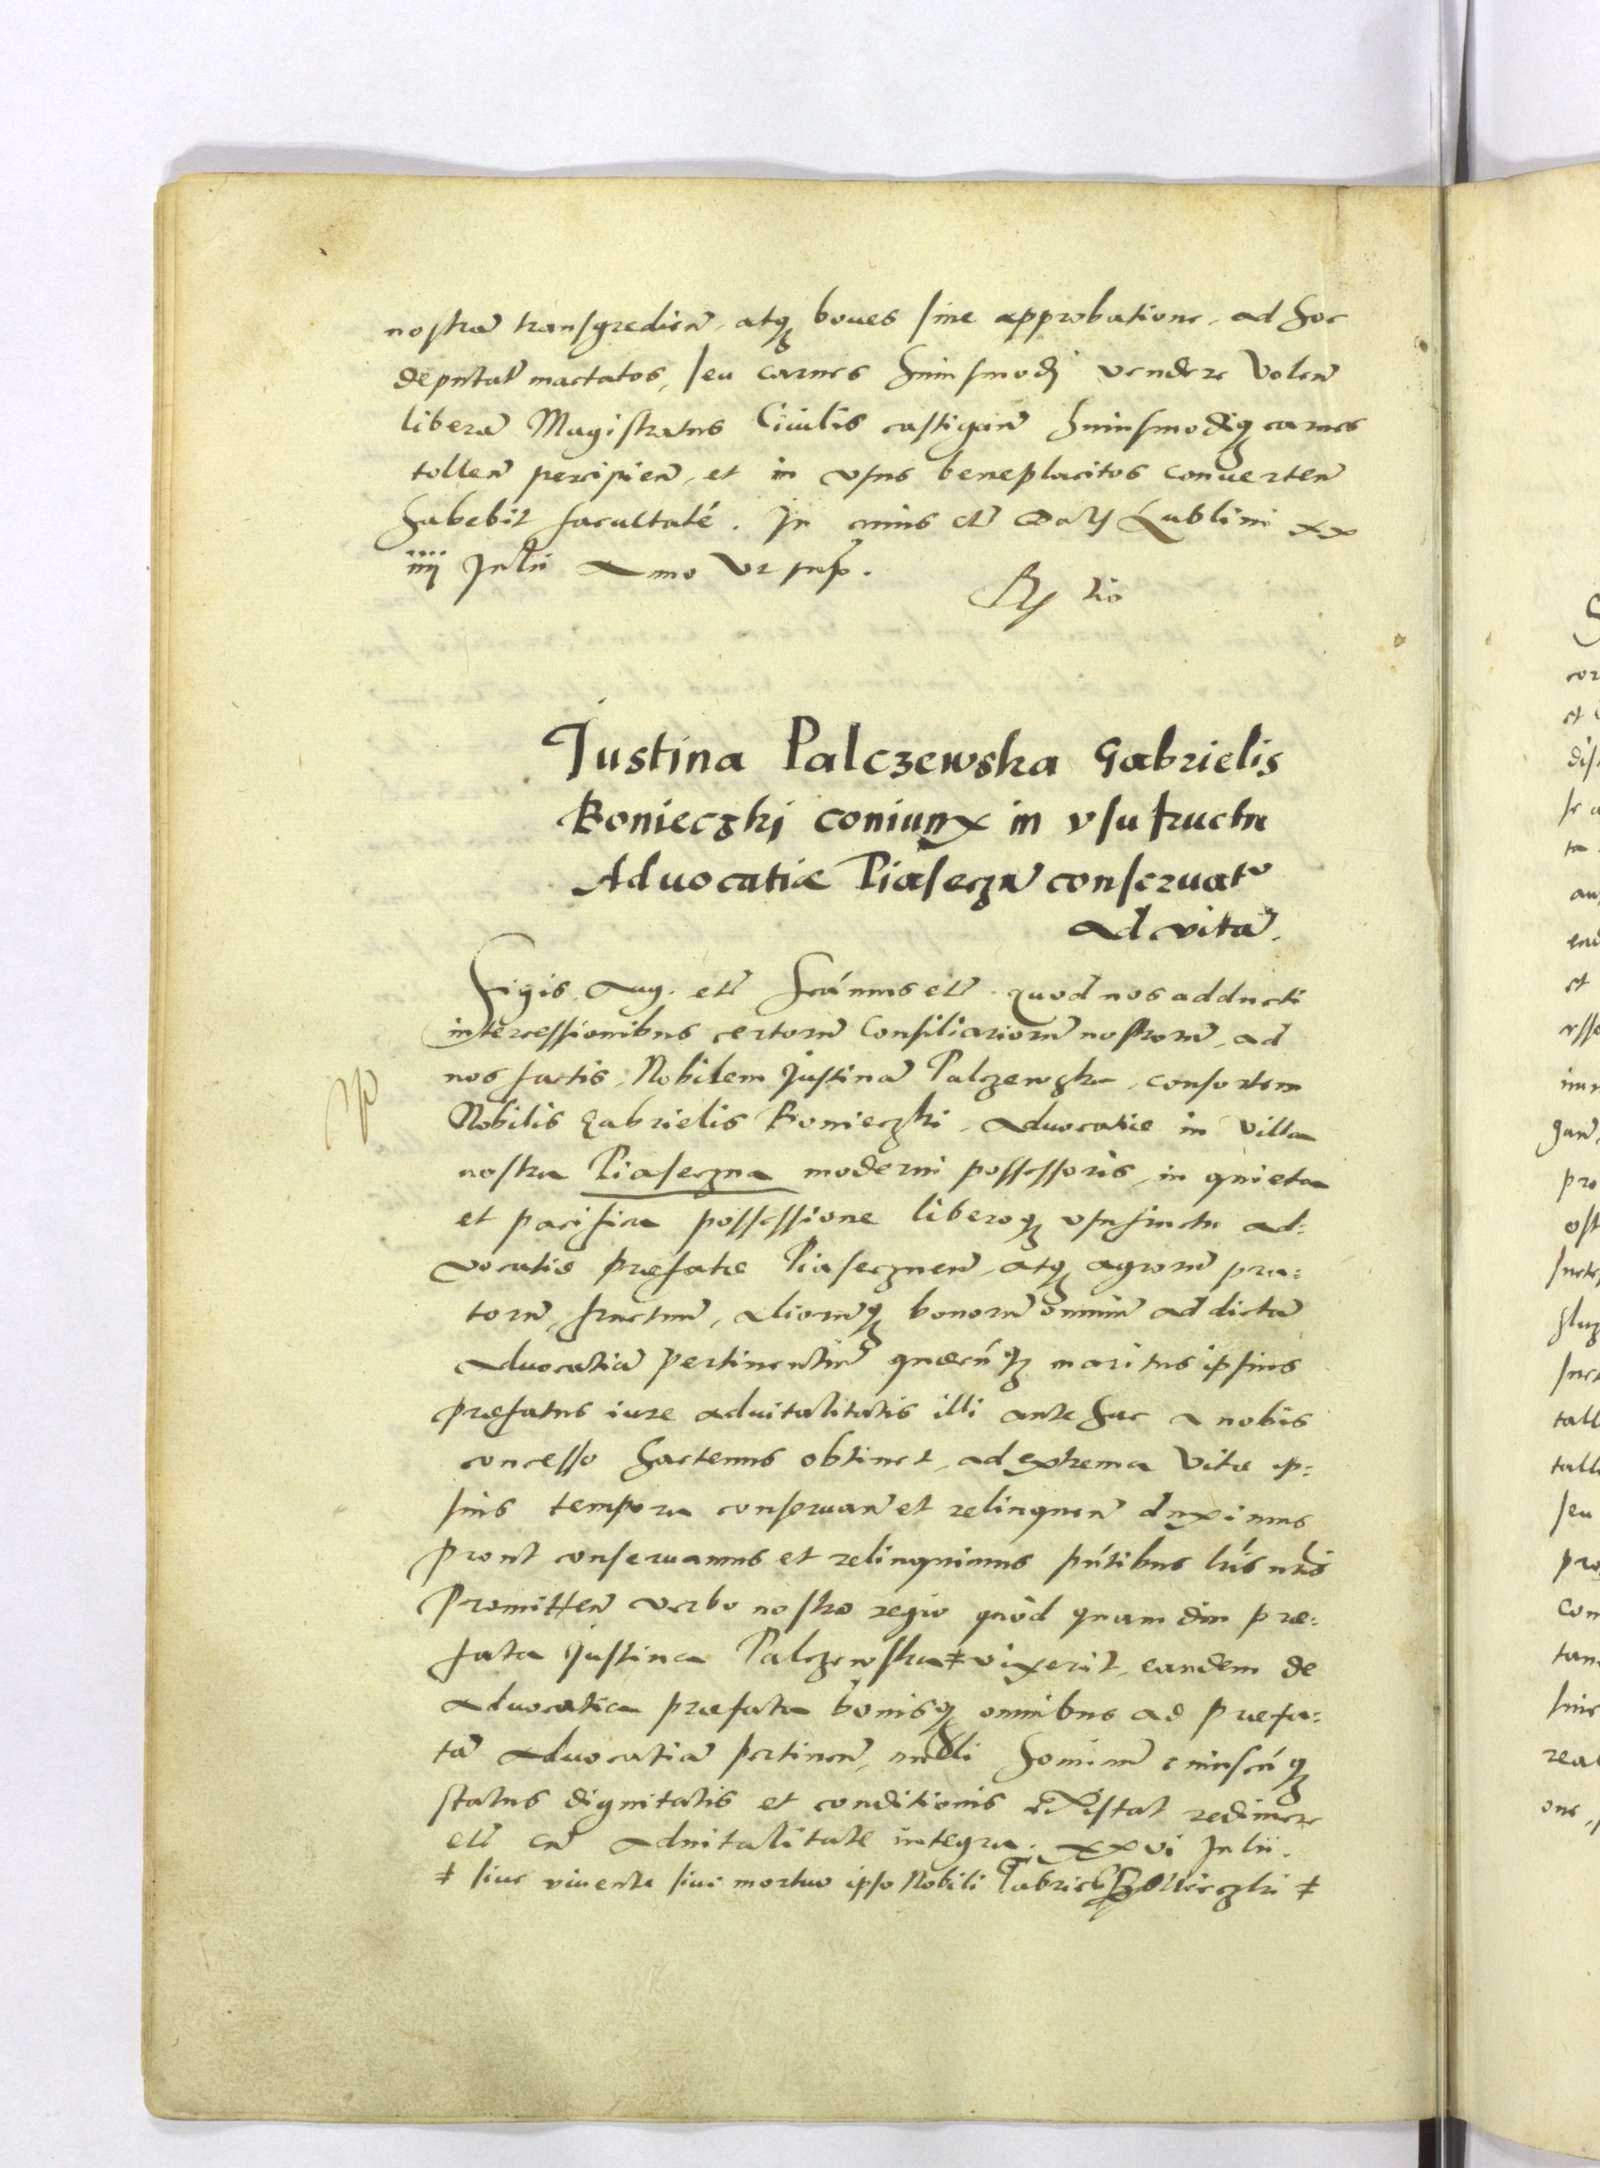 nostrā transgredien̄, atq₃ boues sine approbatione, ad hoc
deputat̄ mactatos, seu carnes huiusmodj vendere volen̄
liberā Magistratus Ciuilis castigan̄ huiusmodiq₃ carnes
tollen̄ percipien̄, et in vsus beneplacitos conuerten̄
habebit facultatē. In cuius etc̄ Lublini xx
iiij Julii Anno vt sup̄.
Iustina Palczewska Gabrielis
Bonieczkj coniunx in vsu fructu
Aduocatiæ Piaseczn̄ conseruat̄
ad vitā.
Sigis. Aug. etc̄ Scī́mus etc̄. quod nos adducti
intercessionibus certorū Consiliariorū nostrorū, ad
nos factis, Nobilem Justinā Palczewska, consortem
Nobilis Gabrielis Bonieczki, aduocatiæ in villa
nostra Piaseczna moderni possessoris, in quieta
et pacifica possessione liberoq₃ vsufructu ad:
vocatiæ præfatæ Piasecznen̄, atq₃ agrorū pra:
torū, fructuū, aliorūq₃ bonorū omniū ad dictā
aduocatiā pertinentiū quæcūq₃ maritus ipsius
præfatus iure aduitalitatis illi ante hac a nobis
concesso hactenus obtinet, ad extrema vitæ ip:
sius tempora conseruan̄ et relinquen̄ duximus
prout conseruamus et relinquimus pn̄tibus lr̄is nr̄is
Promitten̄ verbo nostro regio quòd quam diu præ:
fata Justina Palczewska ǂ vixerit, eandem de
aduocatia præfata bonisq₃ omnibus ad præfa:
tā aduocatiā pertinen̄, nulli hominū cuiuscūq₃
status dignitatis et conditionis existat redimere
etc̄ cū aduitalitate integra. xxvi Julii.
ǂ siue viuente siue mortuo ipso Nobili Gabriele Bonieczki ǂ